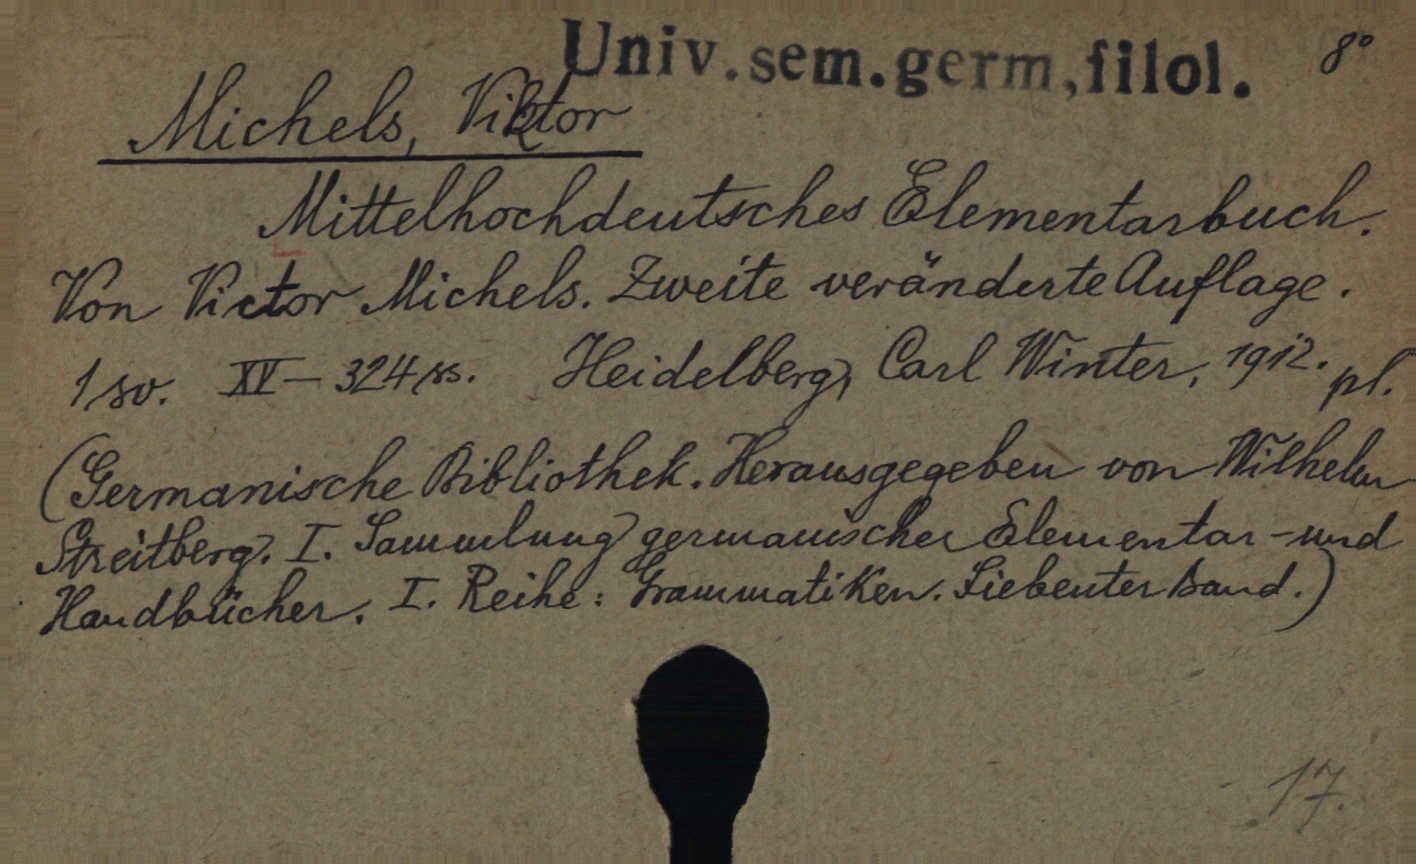 Univ. sem. germ, filol. 8°
Michels, Viktor
Mittelhochdeutsches Elementarbuch.
Von Victor Michels. Zweite veränderte Auflage.
1 sv. XV — 324 ss. Heidelberg, Carl Winter, 1912. pl.
(Germanische Bibliothek. Herausgegeben von Wilhelm
Streitberg. I. Sammlung germanischer Elementar- und
Handbücher. I. Reihe: Grammatiken. Siebenter Band.)
17.